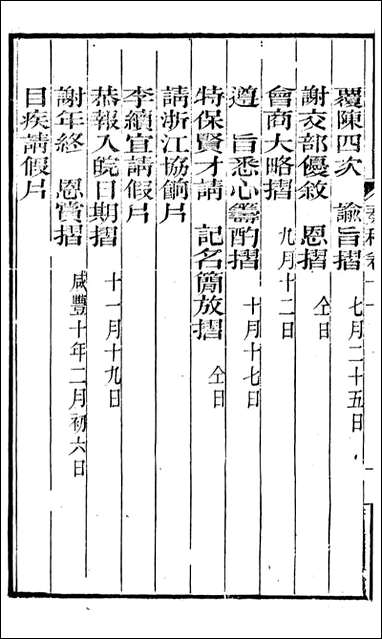 覆陳四次　諭旨摺　七月二十五日
謝交部優敘　恩摺　仝日
會商大略摺　九月十二日
遵　旨悉心籌酌摺　十月十七日
特保賢才請　記名簡放摺　仝日
請浙江協餉片
李續宜請假片
恭報入皖日期摺　十一月十九日
謝年終　恩賞摺　咸豐十年二月初六日
目疾請假片